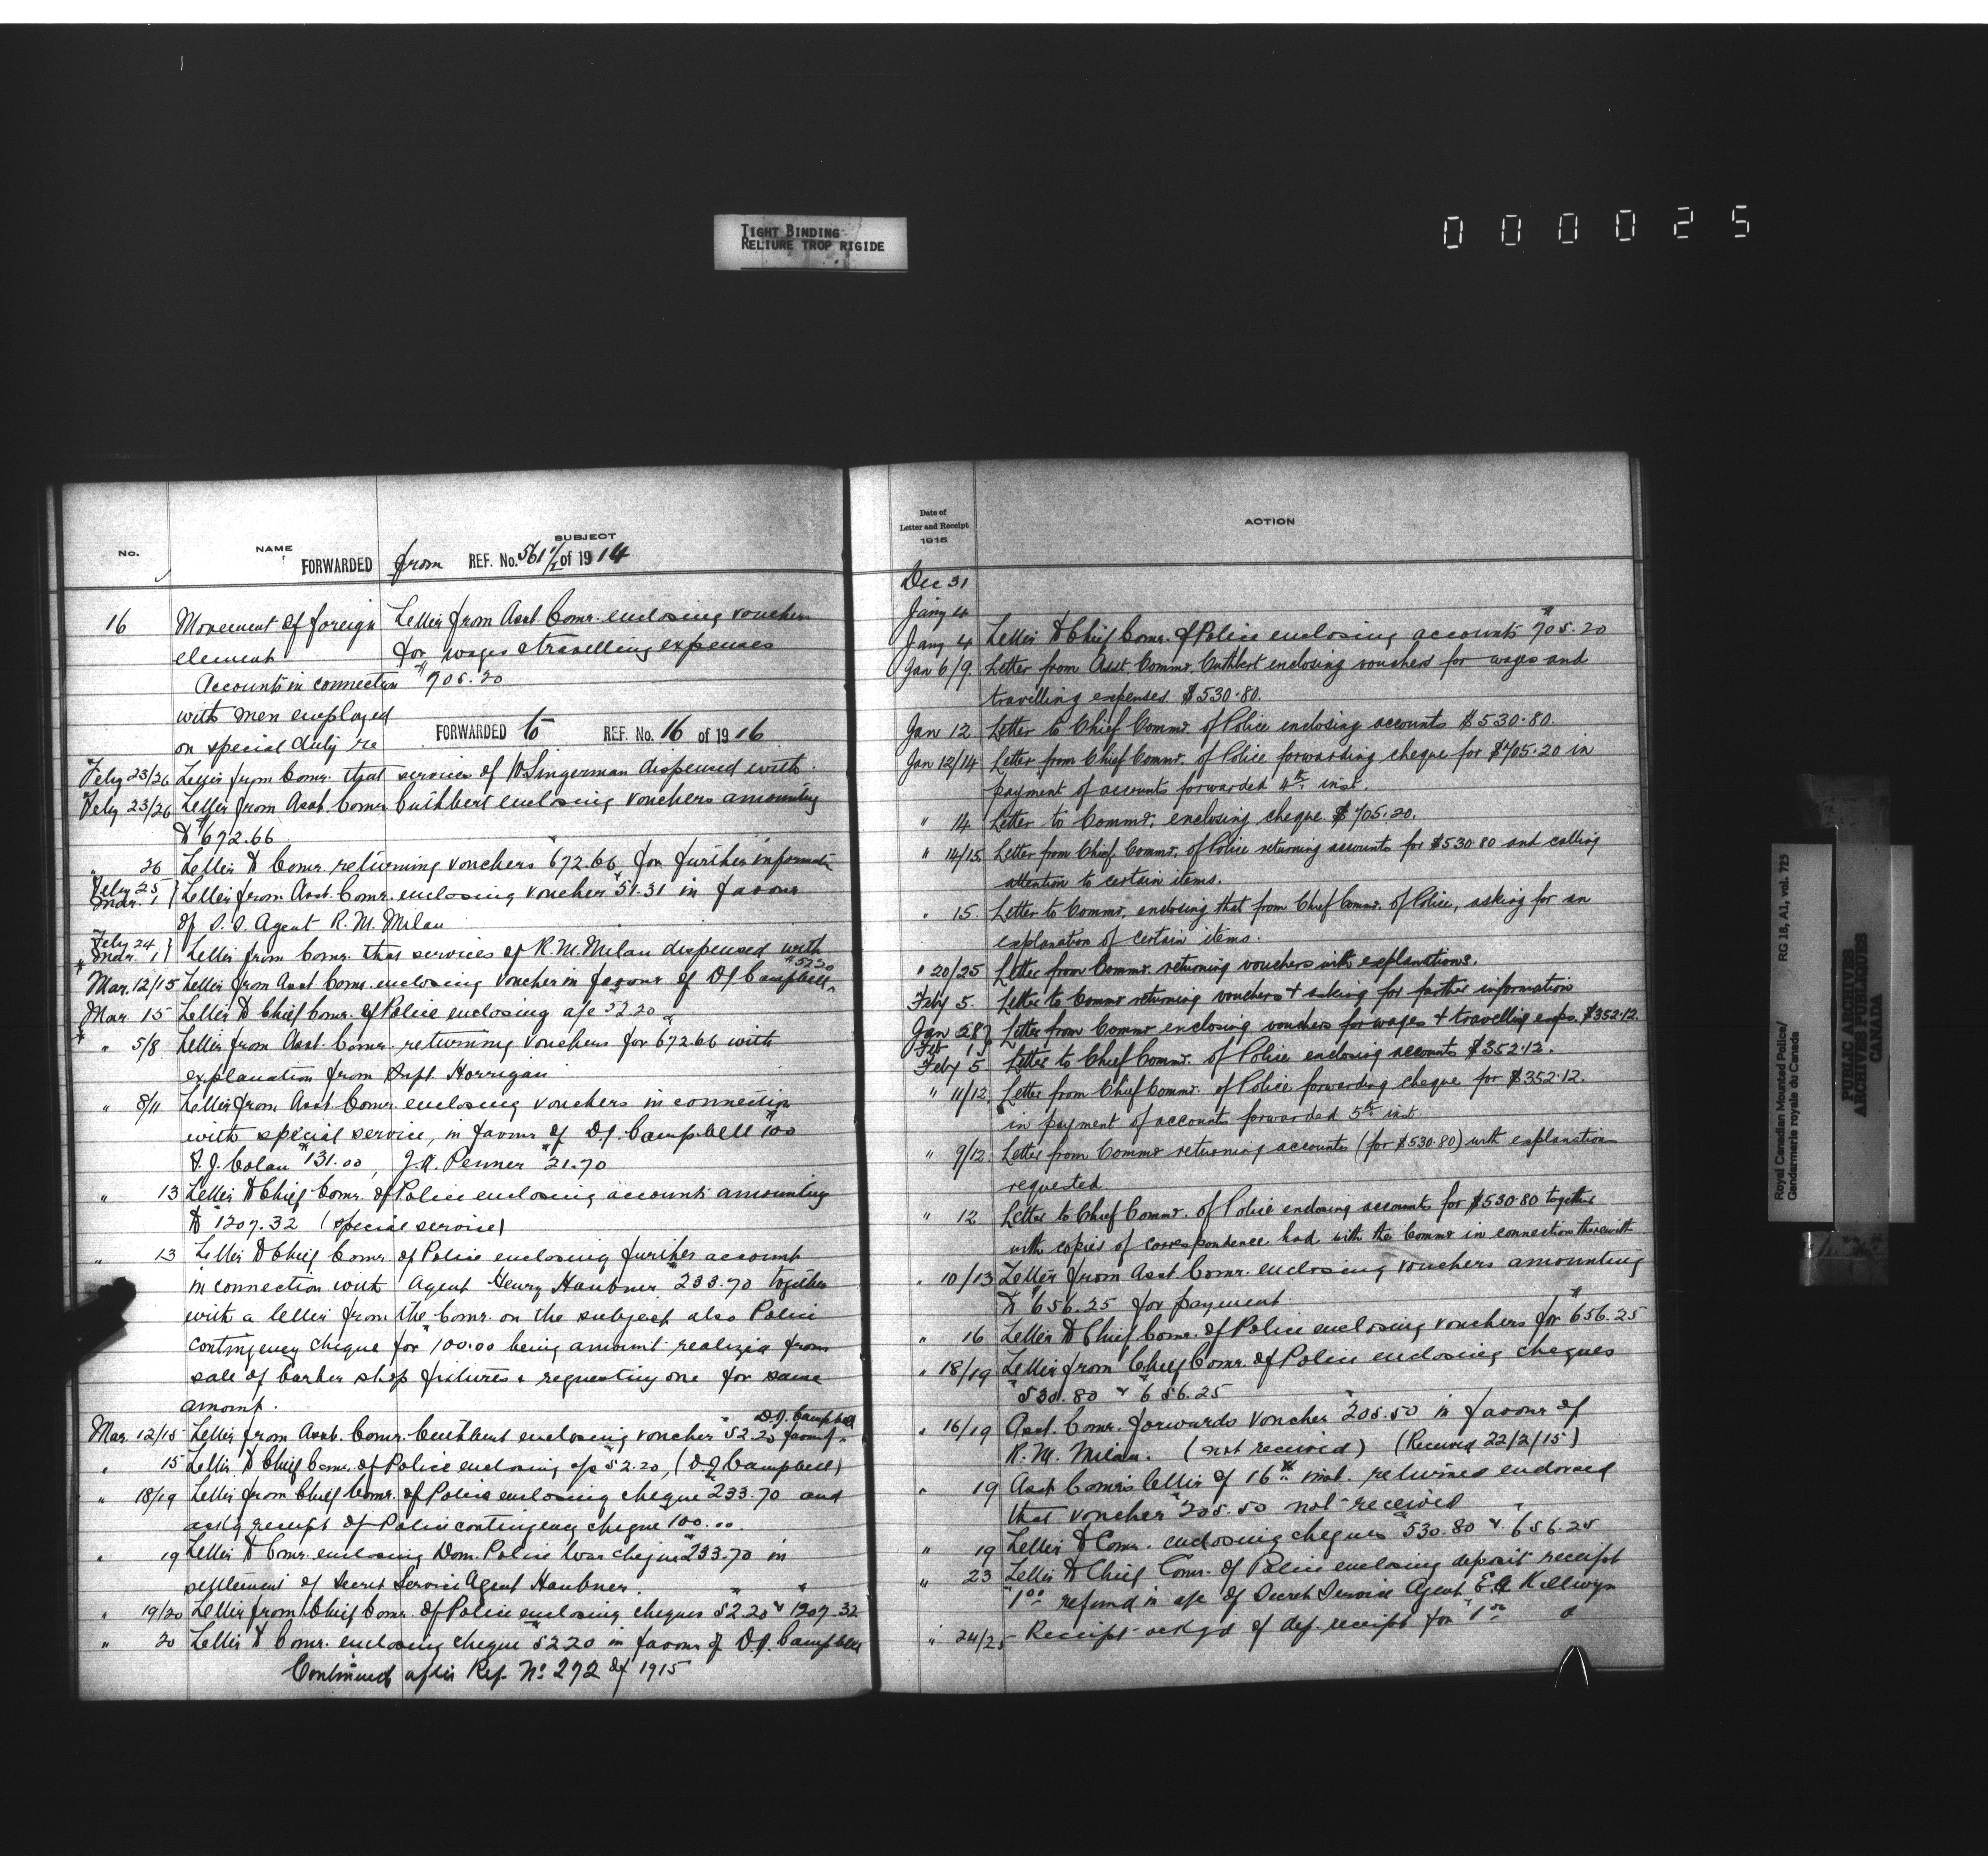 TIGHT BINDING
RELIURE TROP RIGIDE
000025
No.
NAME
SUBJECT
FORWARDED from REF. No. 561 1/2 of 1914
16 Movement of foreign Letter from Asst. Comr. enclosing vouchers
element for wages & travelling expenses
Accounts in connection $705.20
with men employed
FORWARDED to REF. No. 16 of 1916
on special duty re
Feby 23/26 Letter from Comr. that services of Singerman dispensed with.
Feby 23/26 Letter from Asst. Comr. Cuthbert enclosing vouchers amounting
to $672.66
" 26 Letter to Comr. returning vouchers $672.66 for further informatn
Feby 25 Mar. 1 } Letter from Asst. Comr. enclosing voucher $51.31 in favour
of S.S. Agent R. M. Milan
Feby 24 Mar. 1 } Letter from Comr. that services of R. M. Milan dispensed with
Mar. 12/15 Letter from Asst Comr. enclosing voucher in favour of D J Campbell $52.20
Mar. 15 Letter to Chief Comr. of Police enclosing a/c 52.20
" 5/8 Letter from Asst. Comr. returning vouchers for $672.66 with
explanation from Inspt. Horrigan
" 8/11 Letter from Asst Comr. enclosing vouchers in connection
with special service, in favour of D. J. Campbell $100
F. J. Colan $131.00, J. H. Penner $21.70
" 13 Letter to Chief Comr. of Police enclosing accounts amounting
to $1207.32 (special service)
" 13 Letter to Chief Comr. of Police enclosing further account
in connection with Agent Henry Haubner $233.70 together
with a letter from the Comr. on the subject also Police
contingency cheque for $100.00 being amount realized from
sale of barber shop fixtures & requesting one for same
amount.
Mar. 12/15 Letter from Asst. Comr. Cuthbert enclosing voucher $52.20 favour D.J. Campbell
" 15 Letter to Chief Comr. of Police enclosing a/c $52.20, (D. J. Campbell)
" 18/19 Letter from Chief Comr. of Police enclosing cheque $233.70 and
ackg receipt of Police contingency cheque 100.00.
" 19 Letter to Comr. enclosing Dom. Police War cheque $233.70 in
settlement of Secret Service Agent Haubner.
" 19/20 Letter from Chief Comr. of Police enclosing cheques $52.20 & $1207.32
" 20 Letter to Comr. enclosing cheque $52.20 in favour of D. J. Campbell
Continued after Ref. No. 272 of 1915
Date of
Letter and Receipt
1915
ACTION
Dec 31
Jany 4
Jany 4 Letter to Chief Comr. of Police enclosing accounts $705.20
Jan 6/9. Letter from Asst. Commr. Cuthbert enclosing vouchers for wages and
travelling expenses $530.80.
Jan 12 Letter to Chief Commr. of Police enclosing accounts $530.80.
Jan 12/14 Letter from Chief Commr. of Police forwarding cheque for $705.20 in
payment of accounts forwarded 4th inst.
" 14 Letter to Commr. enclosing cheque $705.20.
" 14/15 Letter from Chief Commr. of Police returning accounts for $530.80 and calling
attention to certain items.
" 15. Letter to Commr. enclosing that from Chief Commr. of Police, asking for an
explanation of certain items.
" 20/25 Letter from Commr. returning vouchers with explanations.
Feby 5. Letter to Commr returning vouchers & asking for further information
Jan 28 Feb 1 } Letter from Commr enclosing vouchers for wages & travelling exps. $352.12.
Feby 5 Letter to Chief Commr. of Police enclosing accounts $352.12.
" 11/12. Letter from Chief Commr. of Police forwarding cheque for $352.12.
in payment of accounts forwarded 5th inst.
" 9/12. Letter from Commr returning accounts (for $530.80) with explanations
requested.
" 12 Letter to Chief Commr. of Police enclosing accounts for $530.80 together
with copies of correspondence had with the Commr in connection therewith
" 10/13 Letter from Asst Comr. enclosing vouchers amounting
to $656.25 for payment.
" 16 Letter to Chief Comr. of Police enclosing vouchers for $656.25
" 18/19 Letter from Chief Comr. of Police enclosing cheques
$530.80 & $656.25
" 16/19 Asst. Comr. forwards voucher $205.50 in favour of
R. M. Milan. (not received) (Received 22/2/15)
" 19 Asst Comr's letter of 16th inst. returned endorsed
that voucher $205.50 not received
" 19 Letter to Comr. enclosing cheques $530.80 & $656.25
" 23 Letter to Chief Comr. of Police enclosing deposit receipt
$1.00 refund in a/c of Secret Service Agent
" 24/25 Receipt ackgd of dep. receipt for $1.00
Royal Canadian Mounted Police/
Gendarmerie royale du Canada
RG 18, A1, vol. 725
PUBLIC ARCHIVES
ARCHIVES PUBLIQUES
CANADA